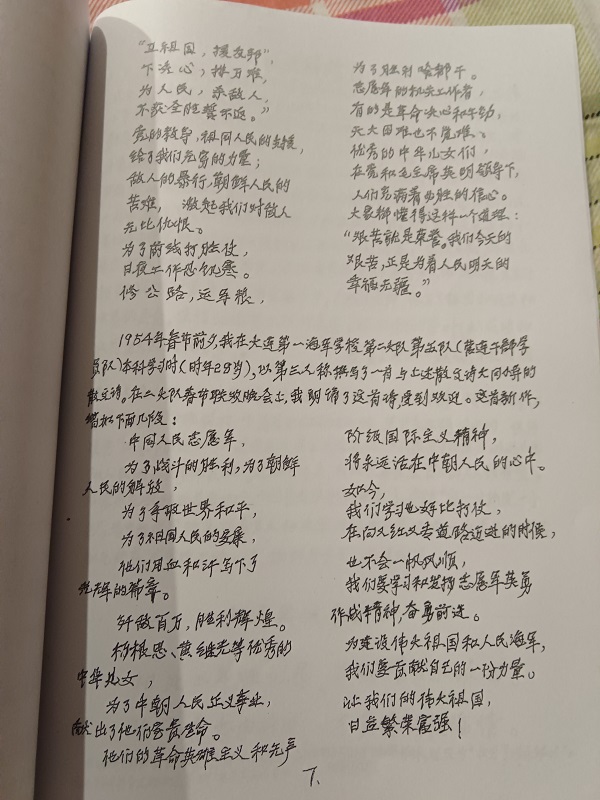 "卫祖国,援友邦",
下决心,排万难,
为人民,杀敌人,
不获全胜誓不返。"
党的教导,祖国人民的支援,
给了我们无穷的力量;
敌人的暴行,朝鲜人民的
苦难,激起我们对敌人
无比仇恨。
为了前线打胜仗,
日夜工作忍饥寒。
修公路,运军粮,
为了胜利啥都干。
志愿军的机关工作者,
有的是革命决心和干劲,
天大困难也不畏难。
优秀的中华儿女们,
在党和毛主席英明领导下,
人们充满着必胜的信心。
大家都懂得这样一个道理:
"艰苦就是荣誉。我们今天的
艰苦,正是为着人民明天的
幸福无疆。"
1954年春节前夕,我在大连第一海军学校第二大队第五队(营连干部学
员队)本科学习时(时年28岁),以第三人称撰写了一首与上述散文诗大同小异的
散文诗。在二大队春节联欢晚会上,我朗诵了这首诗,受到欢迎。这首新作,
增加下面几段:
中国人民志愿军,
为了战斗的胜利,为了朝鲜
人民的解放,
为了争取世界和平,
为了祖国人民的安康,
他们用血和汗写下了
光辉的篇章。
歼敌百万,胜利辉煌。
杨根思、黄继光等优秀的
中华儿女,
为了中朝人民正义事业,
献出了他们宝贵生命。
他们的革命英雄主义和无产
阶级国际主义精神,
将永远活在中朝人民的心中。
如今,
我们学习也好比打仗,
在向又红又专道路迈进的时候,
也不会一帆风顺,
我们要学习和发扬志愿军英勇
作战精神,奋勇前进。
为建设伟大祖国和人民海军,
我们要贡献自己的一份力量。
让我们的伟大祖国,
日益繁荣富强!
7.